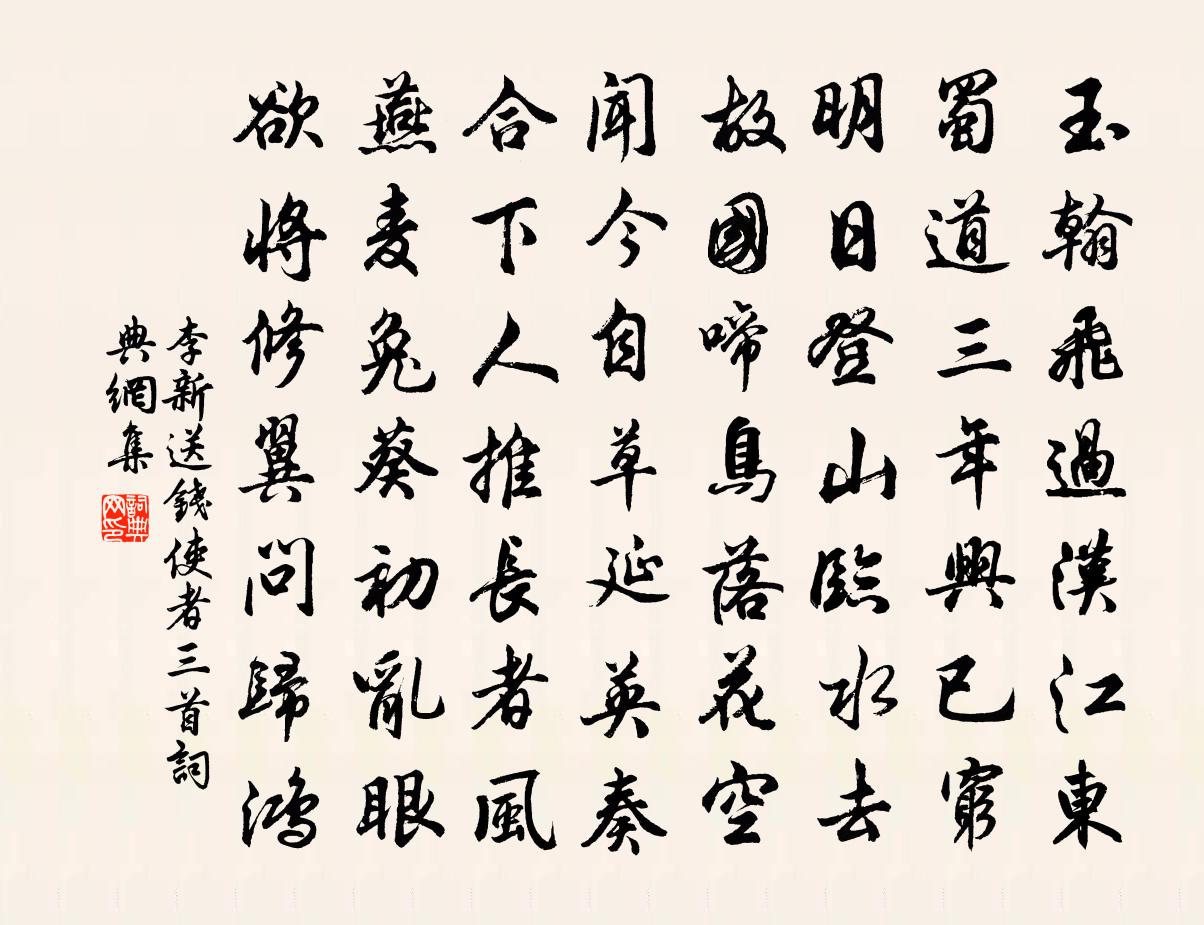 玉翰飛過漢江東
蜀道三年興已窮
明日登山臨水去
故國啼鳥落花空
聞今自草延英奏
合下人推長者風
燕麦兔葵初亂眼
欲將修翼問歸鴻
李新送錢使者三首詞
典網集
詞典網印